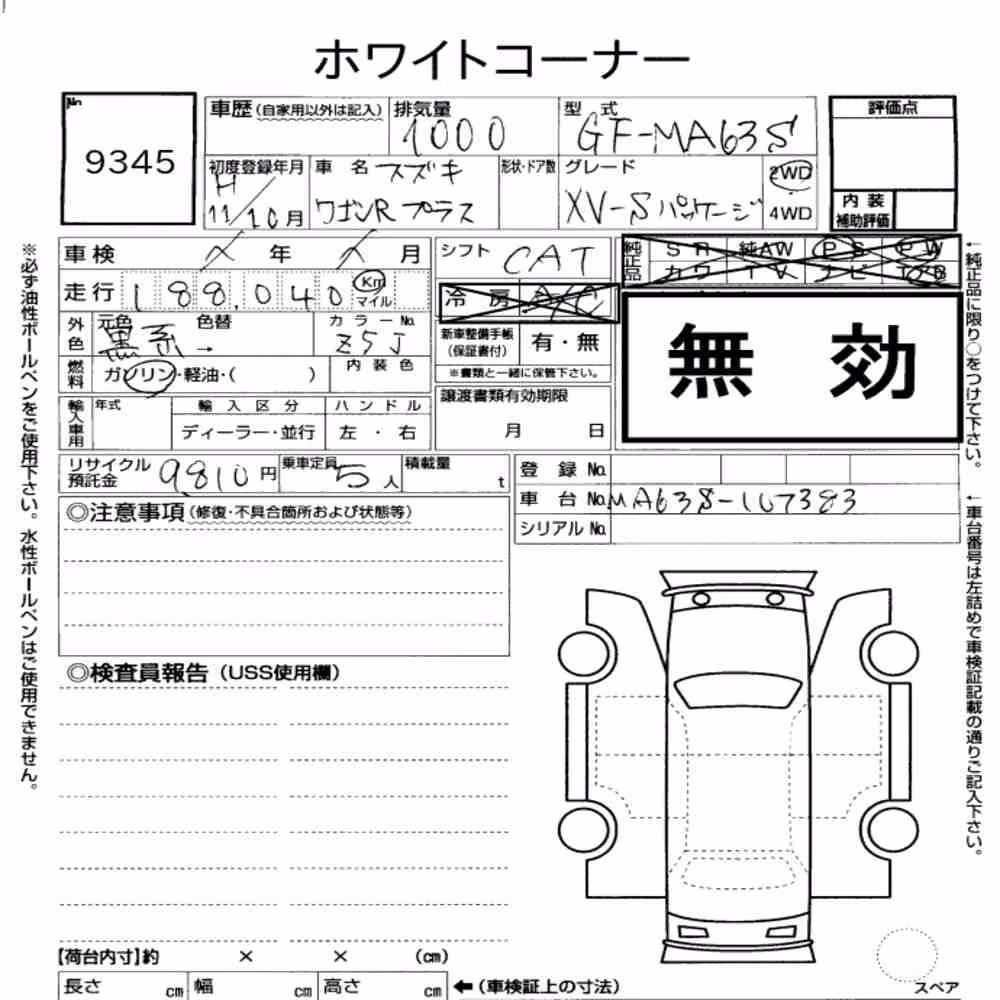 ホワイトコーナー
No
9345
車歴 (自家用以外は記入)
排気量
1000
型式
GF-MA63S
評価点
初度登録年月
H
11/10月
車名 スズキ
ワゴンR プラス
形状・ドア数
グレード
XV-Sパッケージ
2WD
4WD
内装
補助評価
車検 年 月
シフト CAT
純正品
SR 純AW PS PW
カワ TV ナビ
走行 188.040 Km
マイル
冷房 A/C
無効
外色
元色 色替
黒系 →
カラーNo.
Z5J
新車整備手帳
(保証書付)
有・無
※書類と一緒に保管下さい。
燃料
ガソリン・軽油・( )
内装色
輸入車用
年式
輸入区分
ディーラー・並行
ハンドル
左・右
譲渡書類有効期限
月 日
リサイクル
預託金
9810円
乗車定員
5人
積載量
t
登録No.
車台No. MA63S-167383
シリアルNo.
◎注意事項 (修復・不具合箇所および状態等)
◎検査員報告 (USS使用欄)
【荷台内寸】約 × × (cm)
長さ cm 幅 cm 高さ cm ←(車検証上の寸法)
スペア
※必ず油性ボールペンをご使用下さい。水性ボールペンはご使用できません。
←純正品に限り○をつけて下さい。
←車台番号は左詰めで車検証記載の通りご記入下さい。